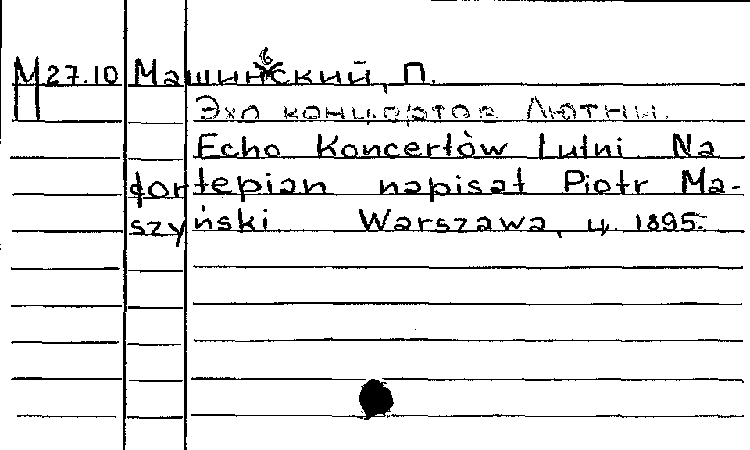 М 27.10 Машиньский, П.
Эхо концертов Лютни.
Echo Koncertów Lutni Na
fortepian napisał Piotr Ma-
szyński Warszawa, ц. 1895.